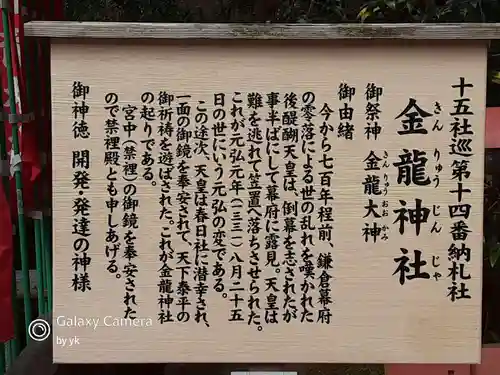 十五社巡第十四番納札社
金龍神社
きん りゅう じん じゃ
御祭神 金龍大神
きん りゅう おお かみ
御由緒
今から七百年程前、鎌倉幕府
の零落による世の乱れを嘆かれた
後醍醐天皇は、倒幕を志されたが
事半ばにして幕府に露見。天皇は
難を逃れて笠置へ落ちさせられた。
これが元弘元年(一三三一)八月二十五
日の世にいう元弘の変である。
この途次、天皇は春日社に潜幸され、
一面の御鏡を奉安されて、天下泰平の
御祈祷を遊ばされた。これが金龍神社
の起りである。
宮中(禁裡)の御鏡を奉安された
ので禁裡殿とも申しあげる。
御神徳 開発・発達の神様
Galaxy Camera
by yk